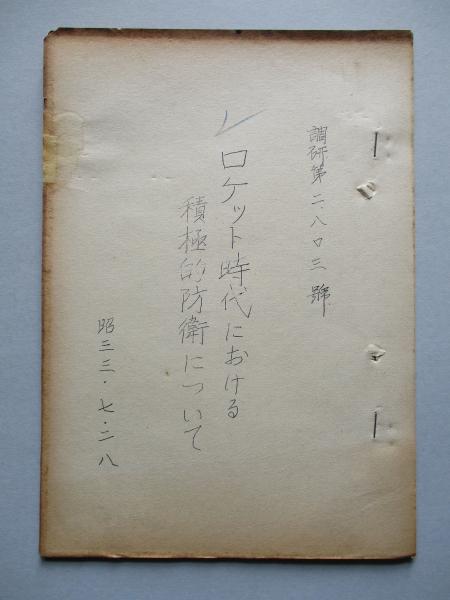 調研第二、八〇三號
ロケット時代における
積極的防衛について
昭三三・七・二八